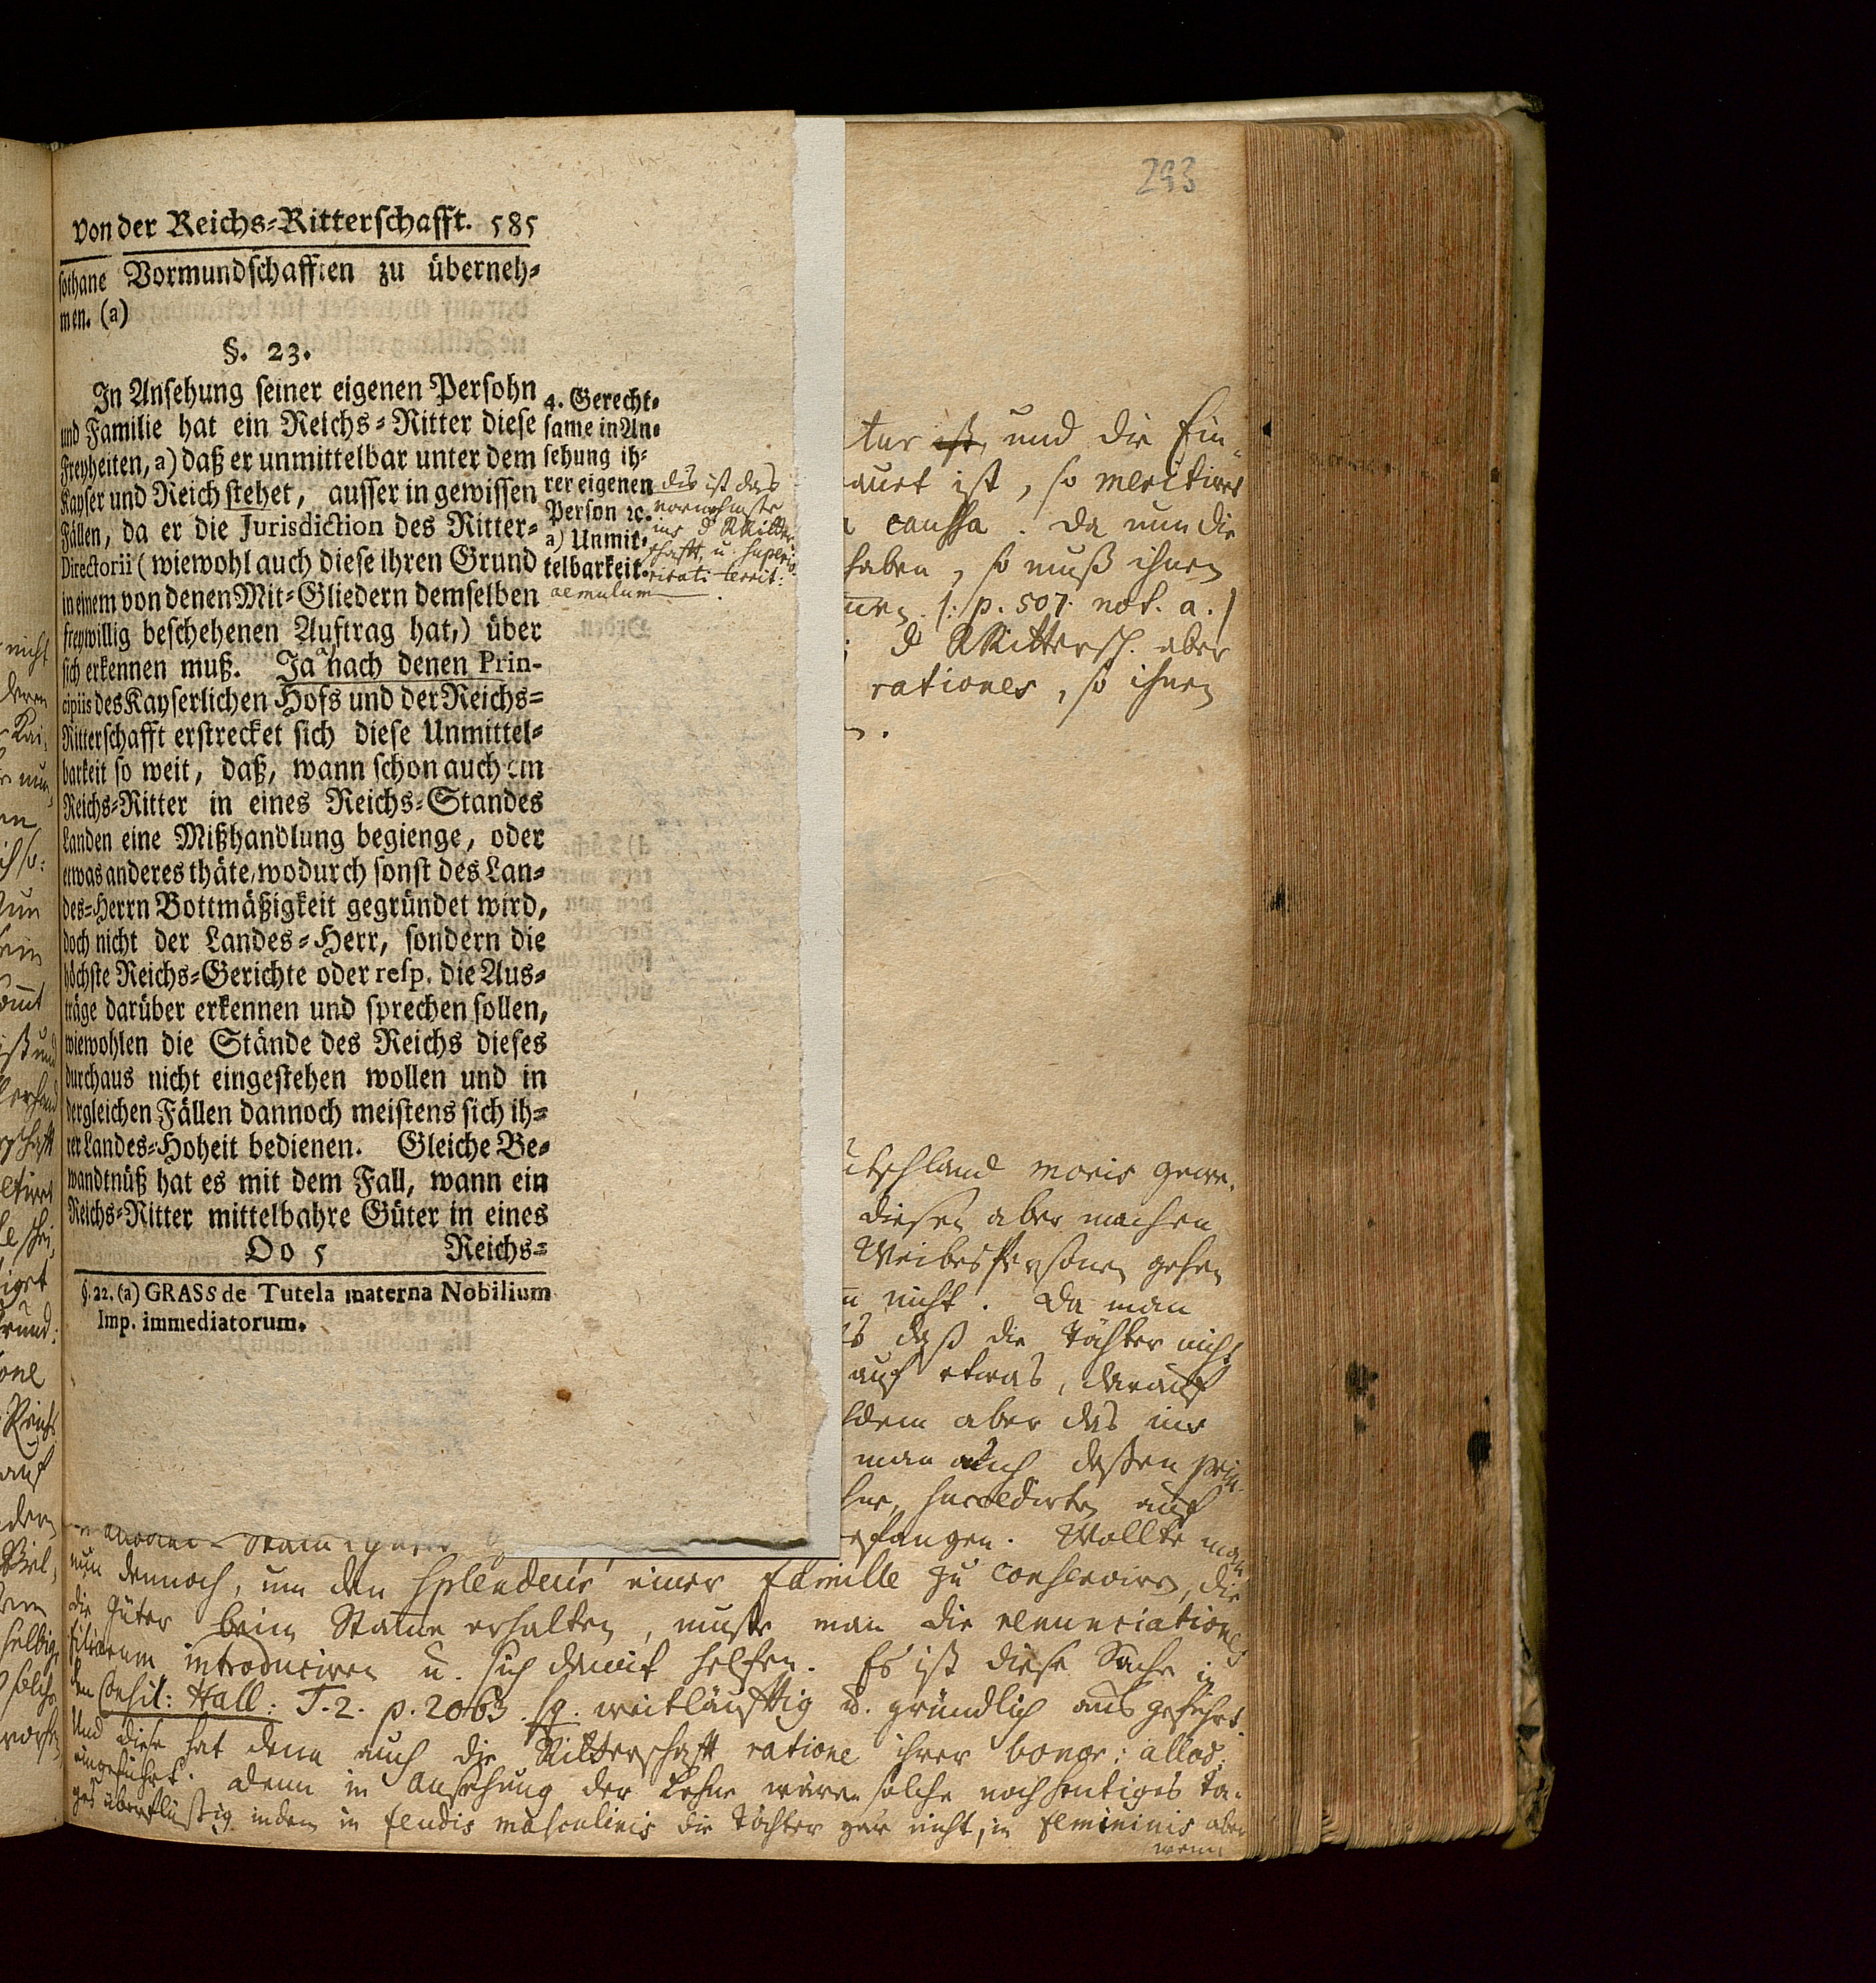 293
von der Reichs-Ritterschafft. 585
sothane Vormundschafften zu überneh-
men. (a)
§. 23.
In Ansehung seiner eigenen Persohn
und Familie hat ein Reichs-Ritter diese
Freyheiten, a) daß er unmittelbar unter dem
Kayser und Reich stehet, ausser in gewissen
Fällen, da er die Jurisdiction des Ritter-
Directorii (wiewohl auch diese ihren Grund
in einem von denen Mit-Gliedern demselben
freywillig beschehenen Auftrag hat,) über
sich erkennen muß. Ja nach denen Prin-
cipiis des Kayserlichen Hofs und der Reichs-
Ritterschafft erstrecket sich diese Unmittel-
barkeit so weit, daß, wann schon auch ein
Reichs-Ritter in eines Reichs-Standes
Landen eine Mißhandlung begienge, oder
etwas anderes thäte, wodurch sonst des Lan-
des-Herrn Bottmäßigkeit gegründet wird,
doch nicht der Landes-Herr, sondern die
höchste Reichs-Gerichte oder resp. die Aus-
träge darüber erkennen und sprechen sollen,
wiewohlen die Stände des Reichs dieses
durchaus nicht eingestehen wollen und in
dergleichen Fällen dannoch meistens sich ih-
rer Landes-Hoheit bedienen. Gleiche Be-
wandtnüß hat es mit dem Fall, wann ein
Reichs-Ritter mittelbahre Güter in eines
Oo 5 Reichs-
§. 22. (a) GRASS de Tutela materna Nobilium
Imp. immediatorum.
4. Gerecht-
same in An-
sehung ih-
rer eigenen
Person ꝛc.
a) Unmit-
telbarkeit.
dis ist das
vornehmste
ius d RRitter-
schafft u. superio-
ritati territ:
aemulum
tur ist, und die Ein-
auet ist, so meritiret
caussa. Da nun die
haben, so muß ihnen
p. 507. not. a.
d RRittersch. aber
rationes, so ihnen
utschland moris gewe-
diesen aber machen
WeibesPersonen gehen
nicht. Da man
daß die Töchter nicht
auf etwas, darauf
dem aber das ius
man auch deßen
succedirten auf
fangen. Wollte man
nun dennoch, um den splendeur einer famille zu conserviren, die
die Güter beim Stamme erhalten, muste man die renunciationes
filiarum introduciren u. sich damit helfen. Es ist diese Sache in
den Consil: Hall: T. 2. p. 2063. sq. weitläufftig u. gründlich ausgeführt.
Und diese hat denn auch die Ritterschafft ratione ihrer bonor: allod:
eingeführt. Denn in Ansehung der Lehne wären solche noch heutiges Ta-
ges überflüßig, indem in feudis masculinis die Töchter gar nicht, in femininis aber
wenn